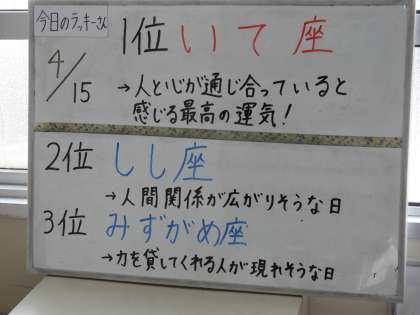 今日のラッキーさん
4/15
1位 いて座
→人と心が通じ合っていると
感じる最高の運気!
2位 しし座
→人間関係が広がりそうな日
3位 みずがめ座
→力を貸してくれる人が現れそうな日